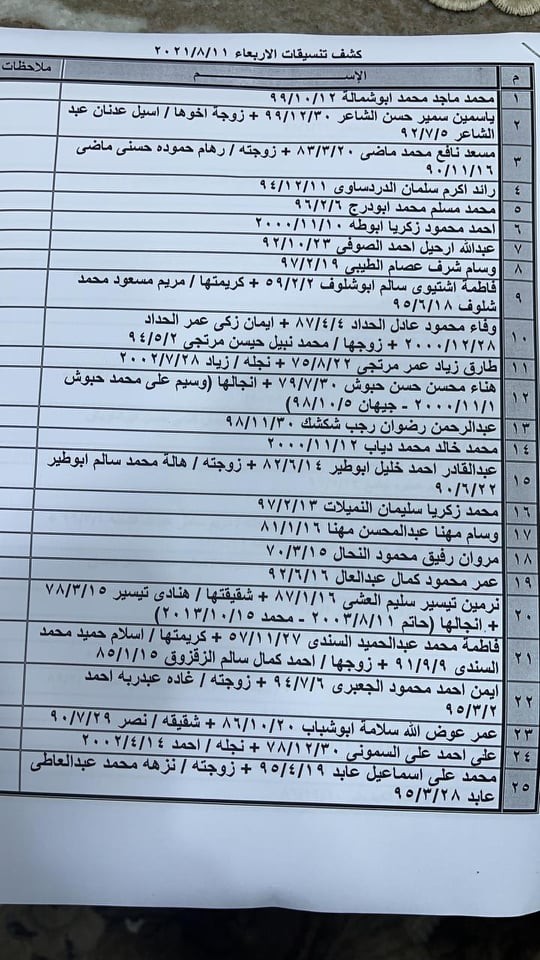 كشف تنسيقات الاربعاء ٢٠٢١/٨/١١
م الإســـــم ملاحظات
١ محمد ماجد محمد ابوشمالة ٩٩/١٠/١٢
٢ ياسمين سمير حسن الشاعر ٩٩/١٢/٣٠ + زوجة اخوها / اسيل عدنان عبد
الشاعر ٩٢/٧/٥
٣ مسعد نافع محمد ماضى ٨٣/٣/٢٠ + زوجته / رهام حموده حسنى ماضى
٩٠/١١/١٦
٤ رائد اكرم سلمان الدردساوى ٩٤/١٢/١١
٥ محمد مسلم محمد ابودرج ٩٦/٢/٦
٦ احمد محمود زكريا ابوطه ٢٠٠٠/١١/١٠
٧ عبدالله ارحيل احمد الصوفى ٩٢/١٠/٢٣
٨ وسام شرف عصام الطيبى ٩٧/٢/١٩
٩ فاطمة اشتيوى سالم ابوشلوف ٥٩/٢/٢ + كريمتها / مريم مسعود محمد
شلوف ٩٥/٦/١٨
١٠ وفاء محمود عادل الحداد ٨٧/٤/٤ + ايمان زكى عمر الحداد
٢٠٠٠/١٢/٢٨ + زوجها / محمد نبيل حيسن مرتجي ٩٤/٥/٢
١١ طارق زياد عمر مرتجي ٧٥/٨/٢٢ + نجله / زياد ٢٠٠٢/٧/٢٨
١٢ هناء محسن حسن حبوش ٧٩/٧/٣٠ + انجالها (وسيم على محمد حبوش
٢٠٠٠/١١/١ - جيهان ٩٨/١٠/٥)
١٣ عبدالرحمن رضوان رجب شكشك ٩٨/١١/٣٠
١٤ محمد خالد محمد دياب ٢٠٠٠/١١/١٢
١٥ عبدالقادر احمد خليل ابوطير ٨٢/٦/١٤ + زوجته / هالة محمد سالم ابوطير
٩٠/٦/٢٢
١٦ محمد زكريا سليمان النميلات ٩٧/٢/١٣
١٧ وسام مهنا عبدالمحسن مهنا ٨١/١/١٦
١٨ مروان رفيق محمود النحال ٧٠/٣/١٥
١٩ عمر محمود كمال عبدالعال ٩٢/٦/١٦
٢٠ نرمين تيسير سليم العشى ٨٧/١/١٦ + شقيقتها / هنادى تيسير ٧٨/٣/١٥
+ انجالها (حاتم ٢٠٠٣/٨/١١ - محمد ٢٠١٣/١٠/١٥)
٢١ فاطمة محمد عبدالحميد السندى ٥٧/١١/٢٧ + كريمتها / اسلام حميد محمد
السندى ٩١/٩/٩ + زوجها / احمد كمال سالم الزقزوق ٨٥/١/١٥
٢٢ ايمن احمد محمود الجعبرى ٩٤/٧/٦ + زوجته / غاده عبدربه احمد
٩٥/٣/٢
٢٣ عمر عوض الله سلامة ابوشباب ٨٦/١٠/٢٠ + شقيقه / نصر ٩٠/٧/٢٩
٢٤ على احمد على السمونى ٧٨/١٢/٣٠ + نجله / احمد ٢٠٠٢/٤/١٤
٢٥ محمد على اسماعيل عابد ٩٥/٤/١٩ + زوجته / نزهه محمد عبدالعاطى
عابد ٩٥/٣/٢٨